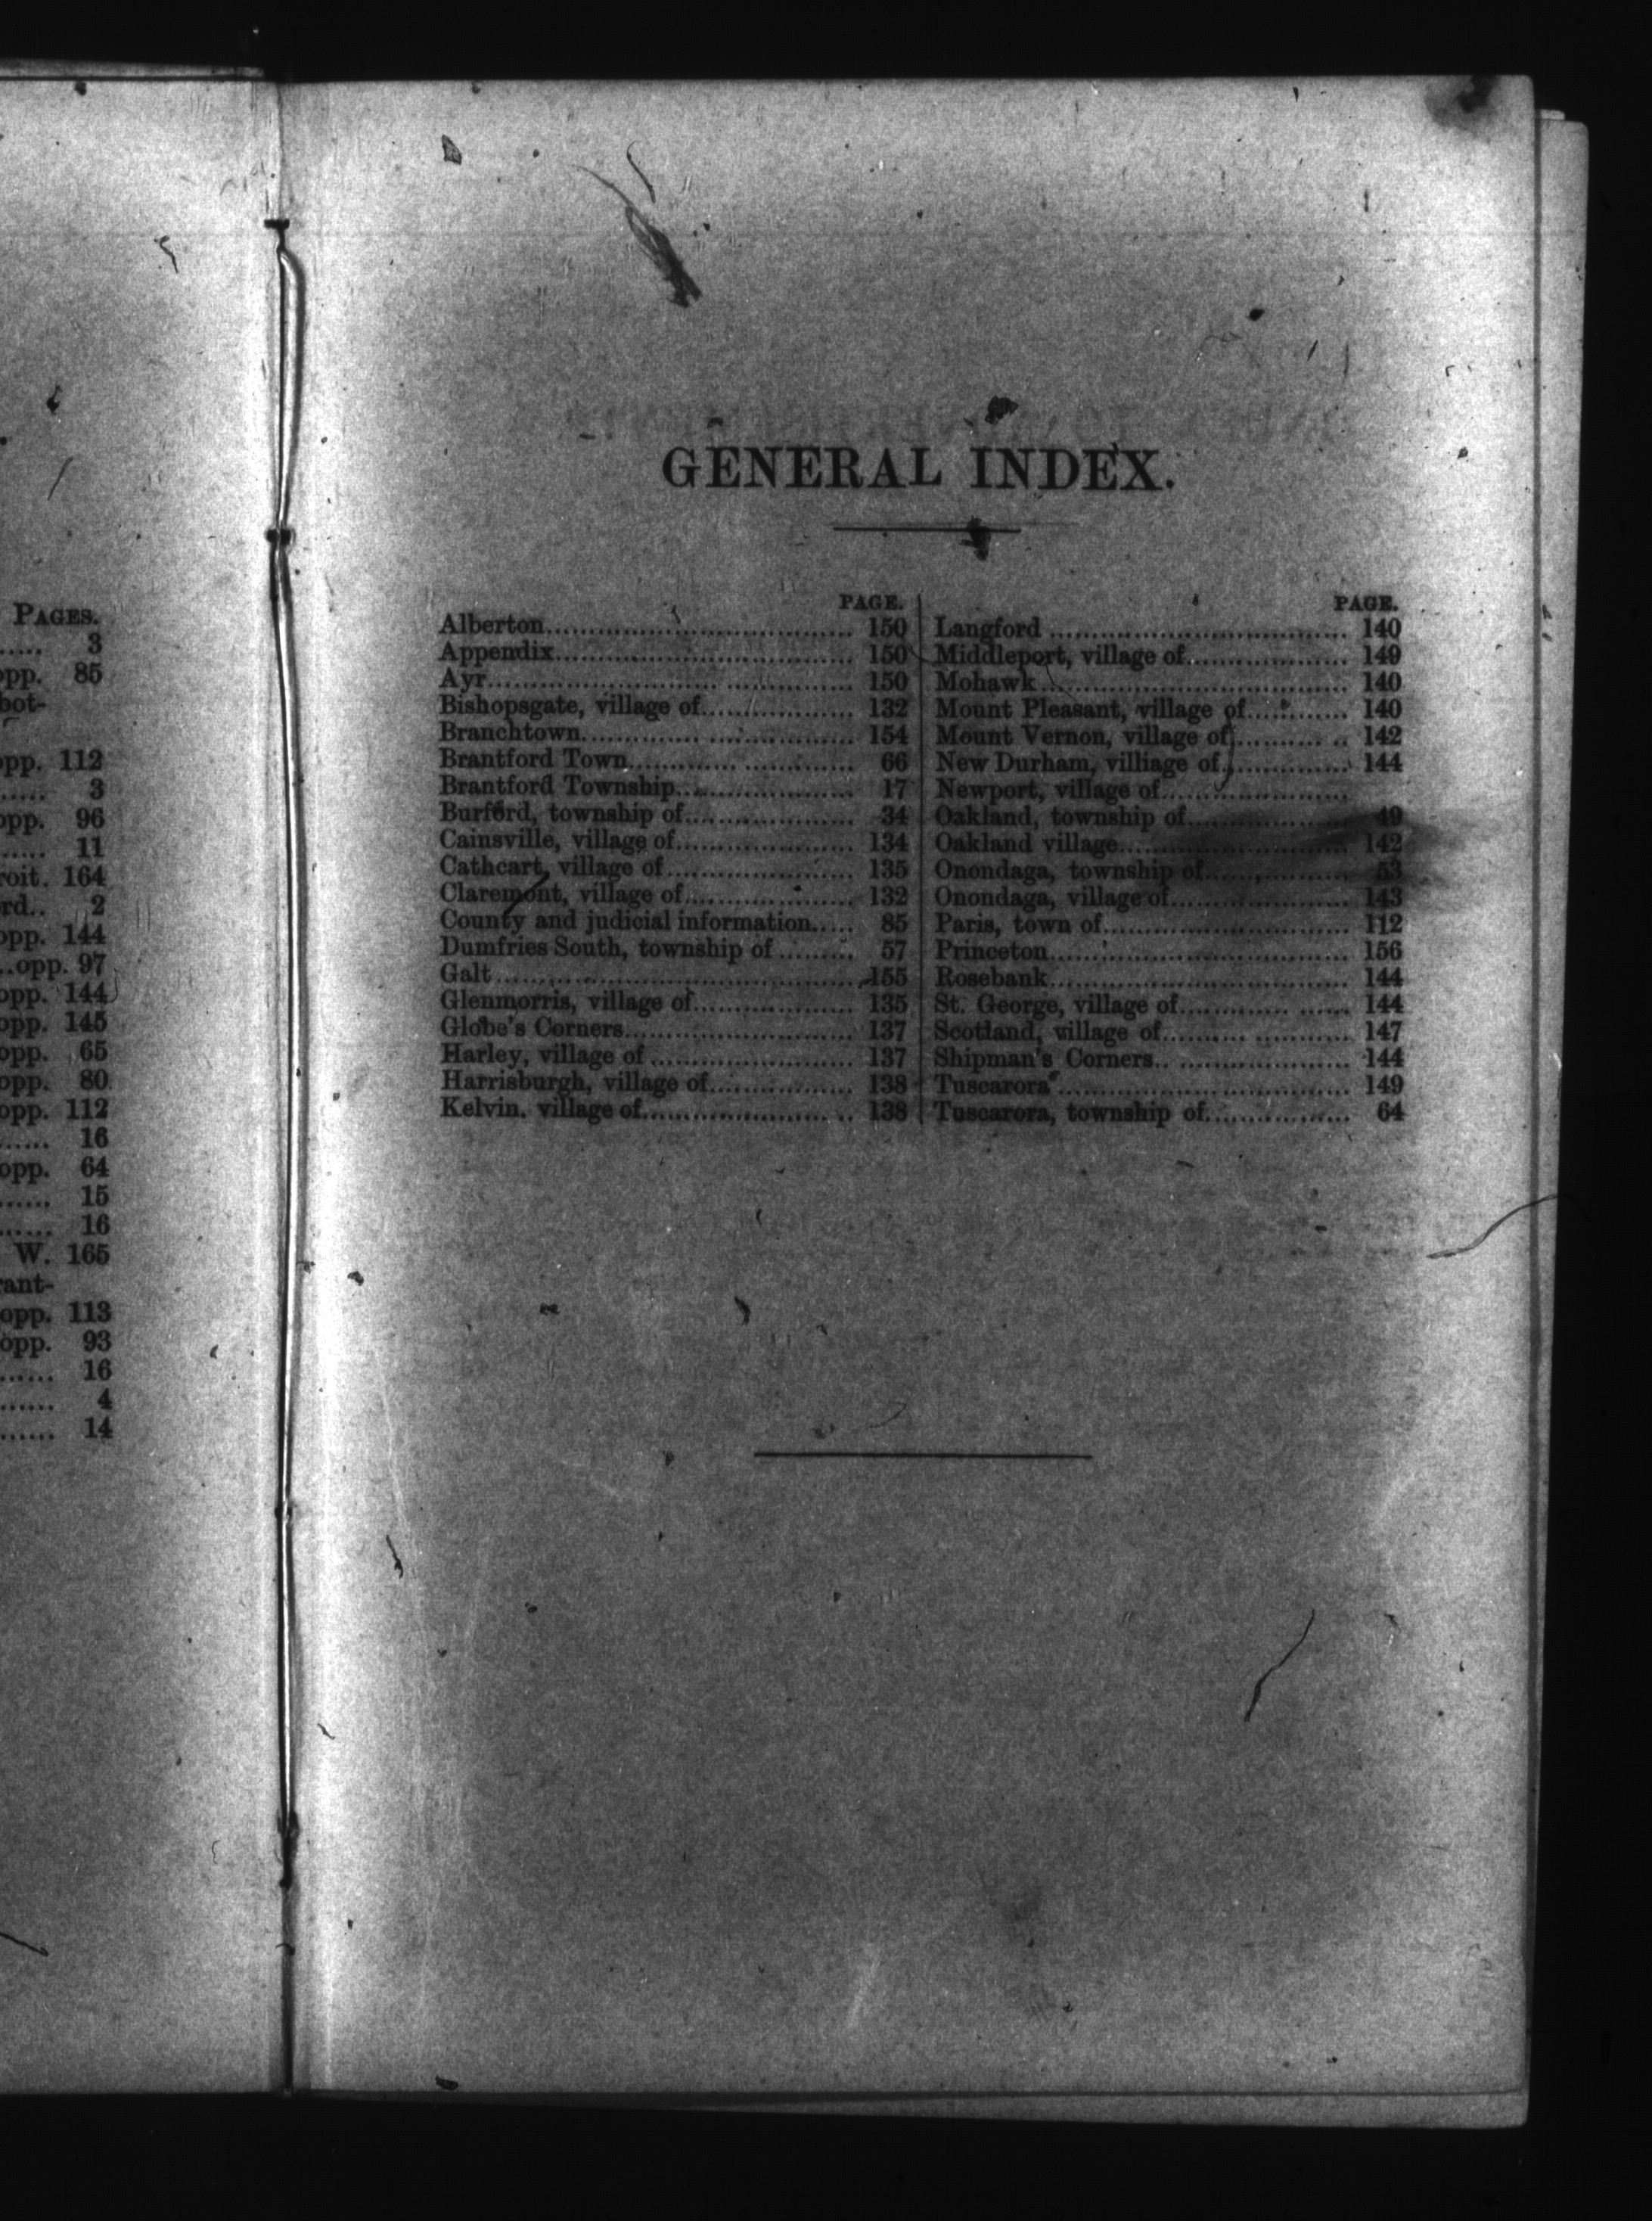 PAGES.
...... 3
opp. 85
bot-
opp. 112
...... 3
opp. 96
...... 11
roit. 164
rd.. 2
opp. 144
..opp. 97
opp. 144
opp. 145
opp. 65
opp. 80
opp. 112
...... 16
opp. 64
...... 15
...... 16
W. 165
rant-
opp. 113
opp. 93
...... 16
...... 4
...... 14
GENERAL INDEX.
PAGE.
Alberton.................................. 150
Appendix.................................. 150
Ayr.................................. 150
Bishopsgate, village of.................. 132
Branchtown.................................. 154
Brantford Town.......................... 66
Brantford Township.................... 17
Burford, township of.................... 34
Cainsville, village of.................... 134
Cathcart, village of...................... 135
Claremont, village of.................... 132
County and judicial information..... 85
Dumfries South, township of ......... 57
Galt.................................. 155
Glenmorris, village of.................. 135
Globe's Corners.......................... 137
Harley, village of........................ 137
Harrisburgh, village of................. 138
Kelvin. village of........................ 138
PAGE.
Langford .................................. 140
Middleport, village of................... 149
Mohawk.................................. 140
Mount Pleasant, village of............ 140
Mount Vernon, village of.............. 142
New Durham, villiage of............... 144
Newport, village of......................
Oakland, township of.................... 49
Oakland village........................... 142
Onondaga, township of................. 53
Onondaga, village of..................... 143
Paris, town of............................. 112
Princeton.................................. 156
Rosebank.................................. 144
St. George, village of.................... 144
Scotland, village of...................... 147
Shipman's Corners....................... 144
Tuscarora.................................. 149
Tuscarora, township of................. 64